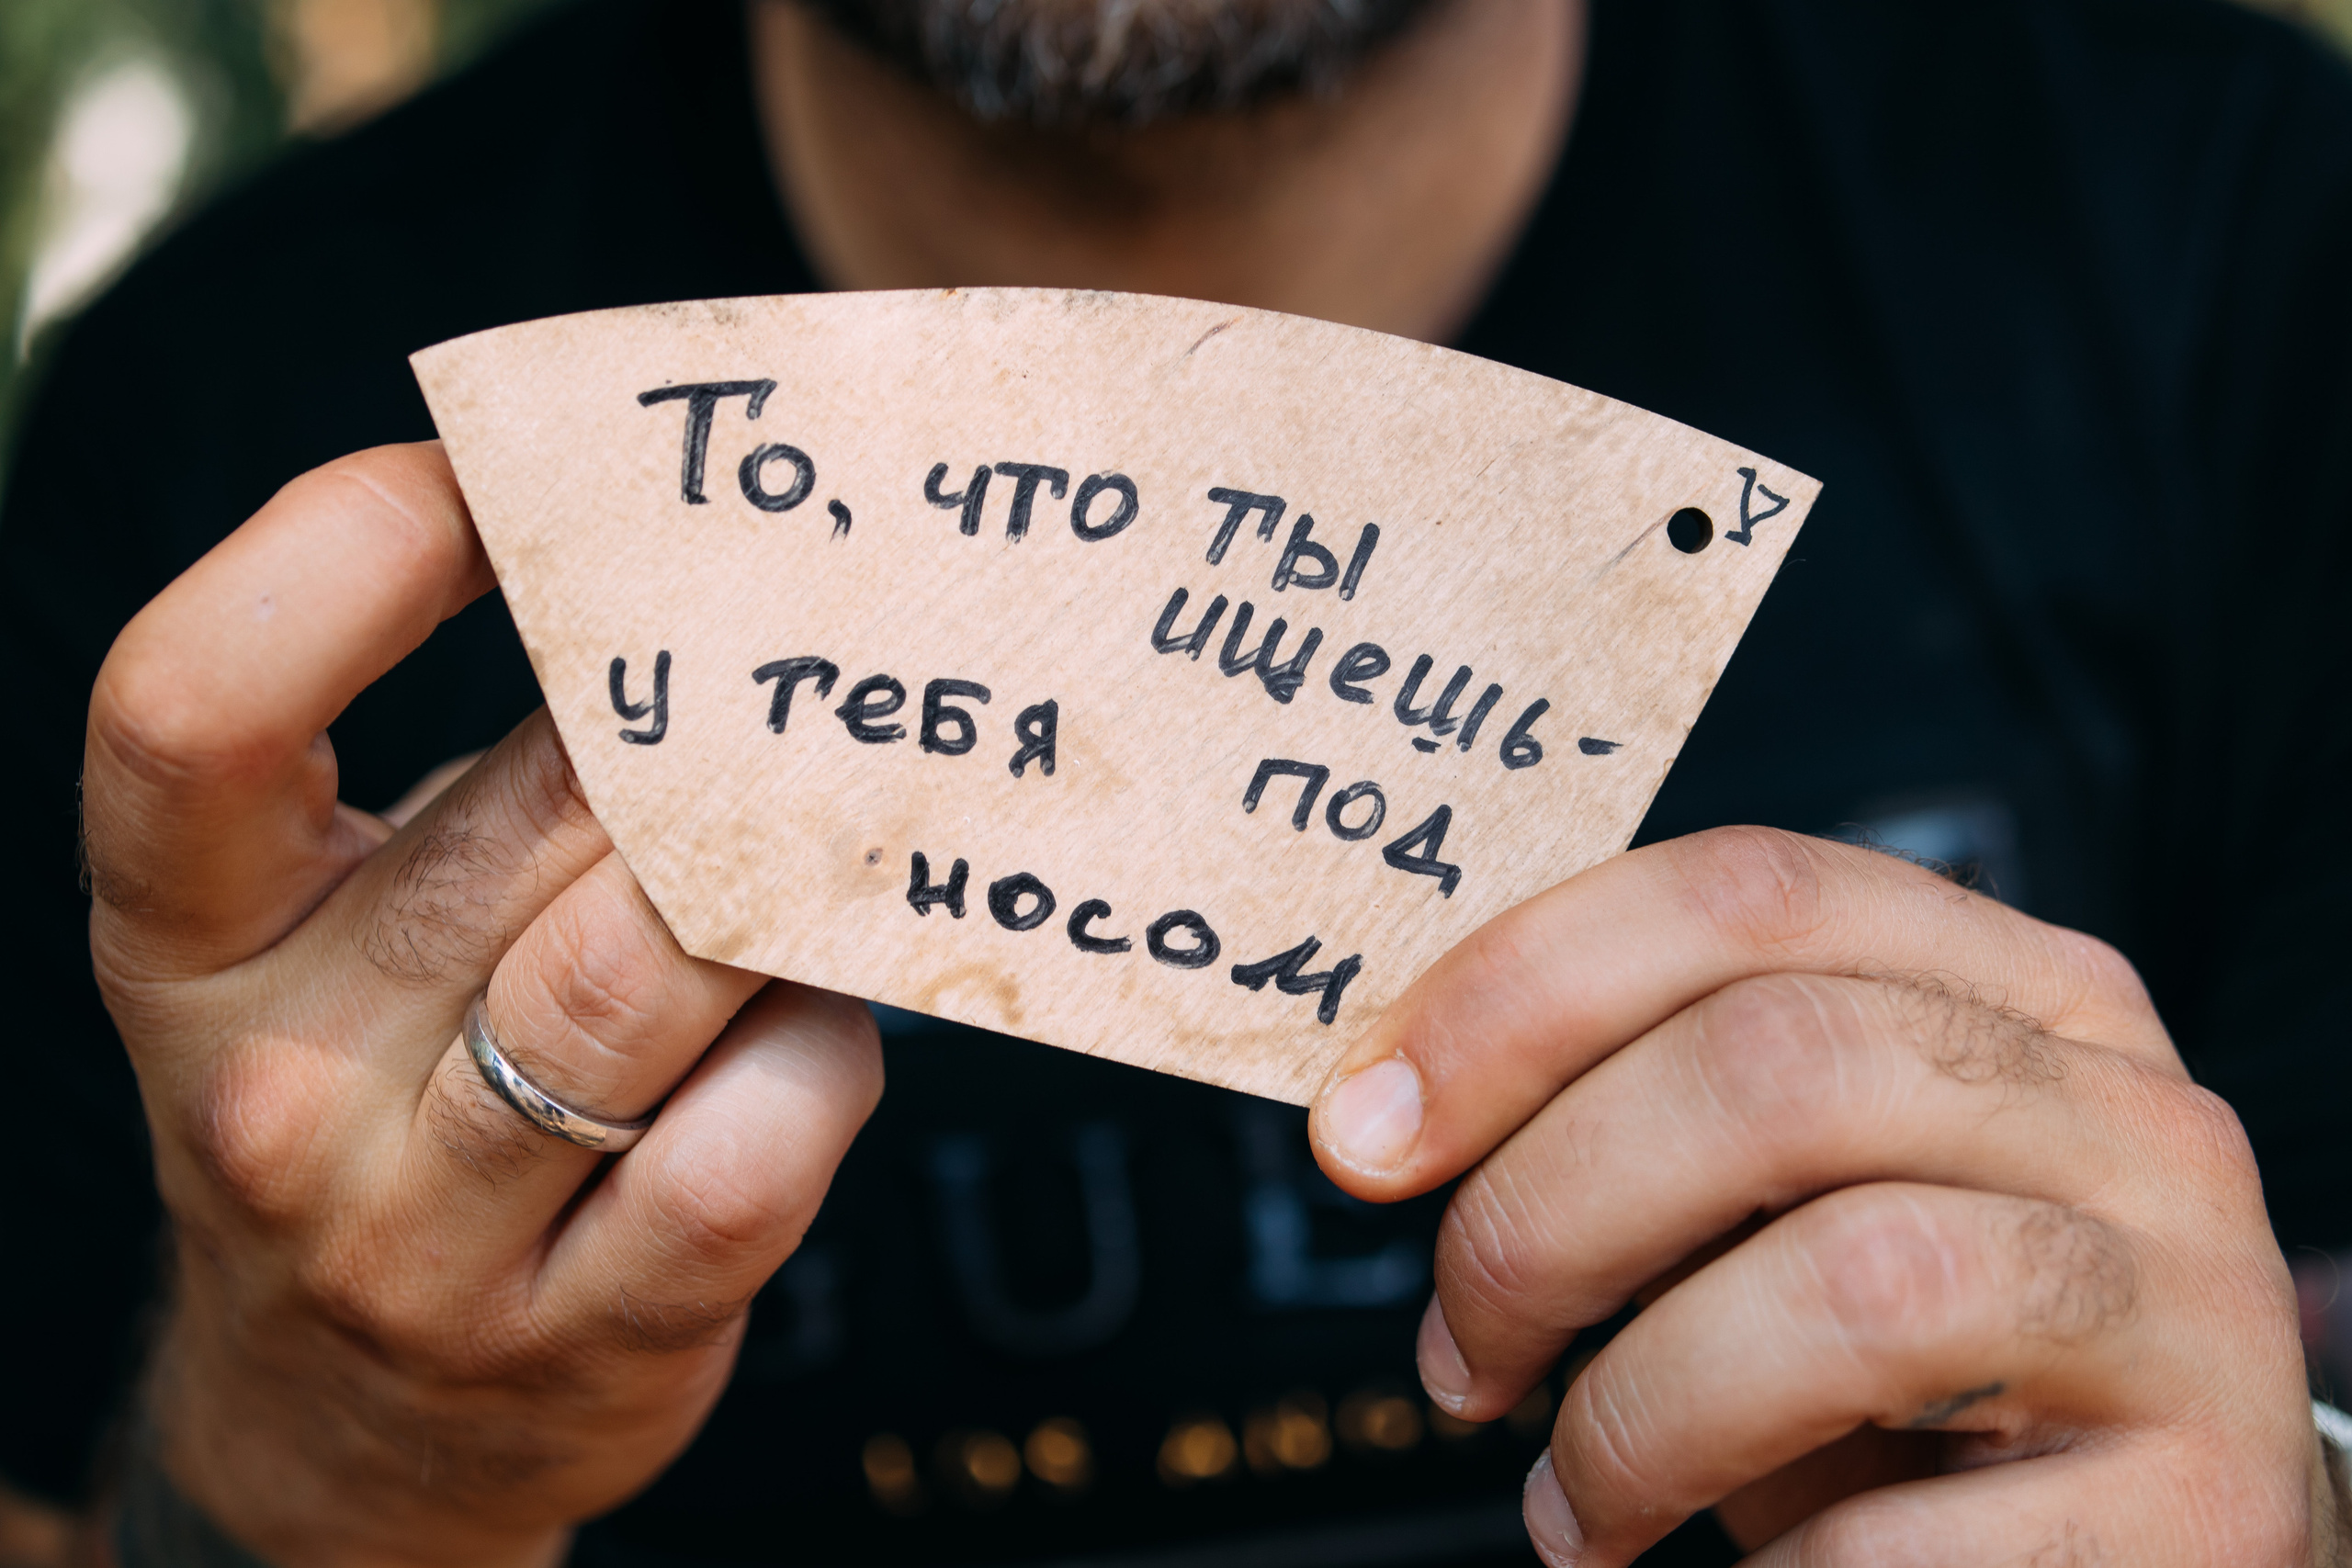 То, что ты
ищешь-
у тебя под
носом